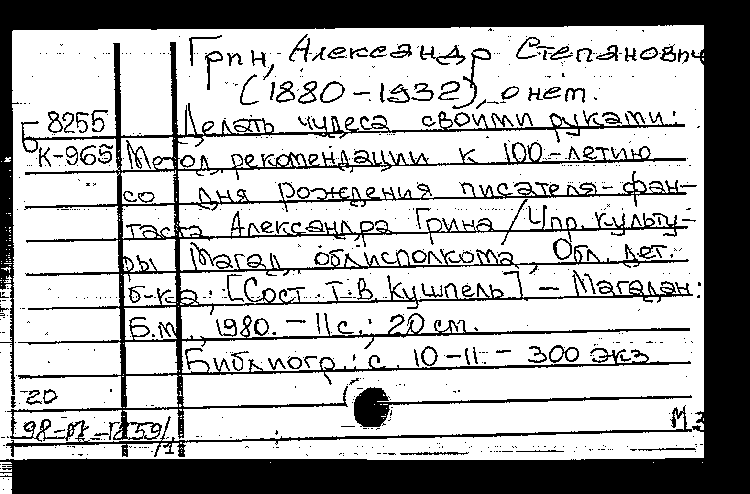 Грин, Александр Степанович
(1880-1932), о нем.
Б 8255 Делать чудеса своими руками:
К-965 Метод. рекомендации к 100-летию
со дня рождения писателя-фан-
таста Александра Грина / Упр. культу-
ры Магад. облисполкома, Обл. дет.
б-ка; [Сост. Т.В. Кушпель] - Магадан:
Б.м., 1980. - 11 с.; 20 см.
Библиогр.: с. 10-11. - 300 экз
20